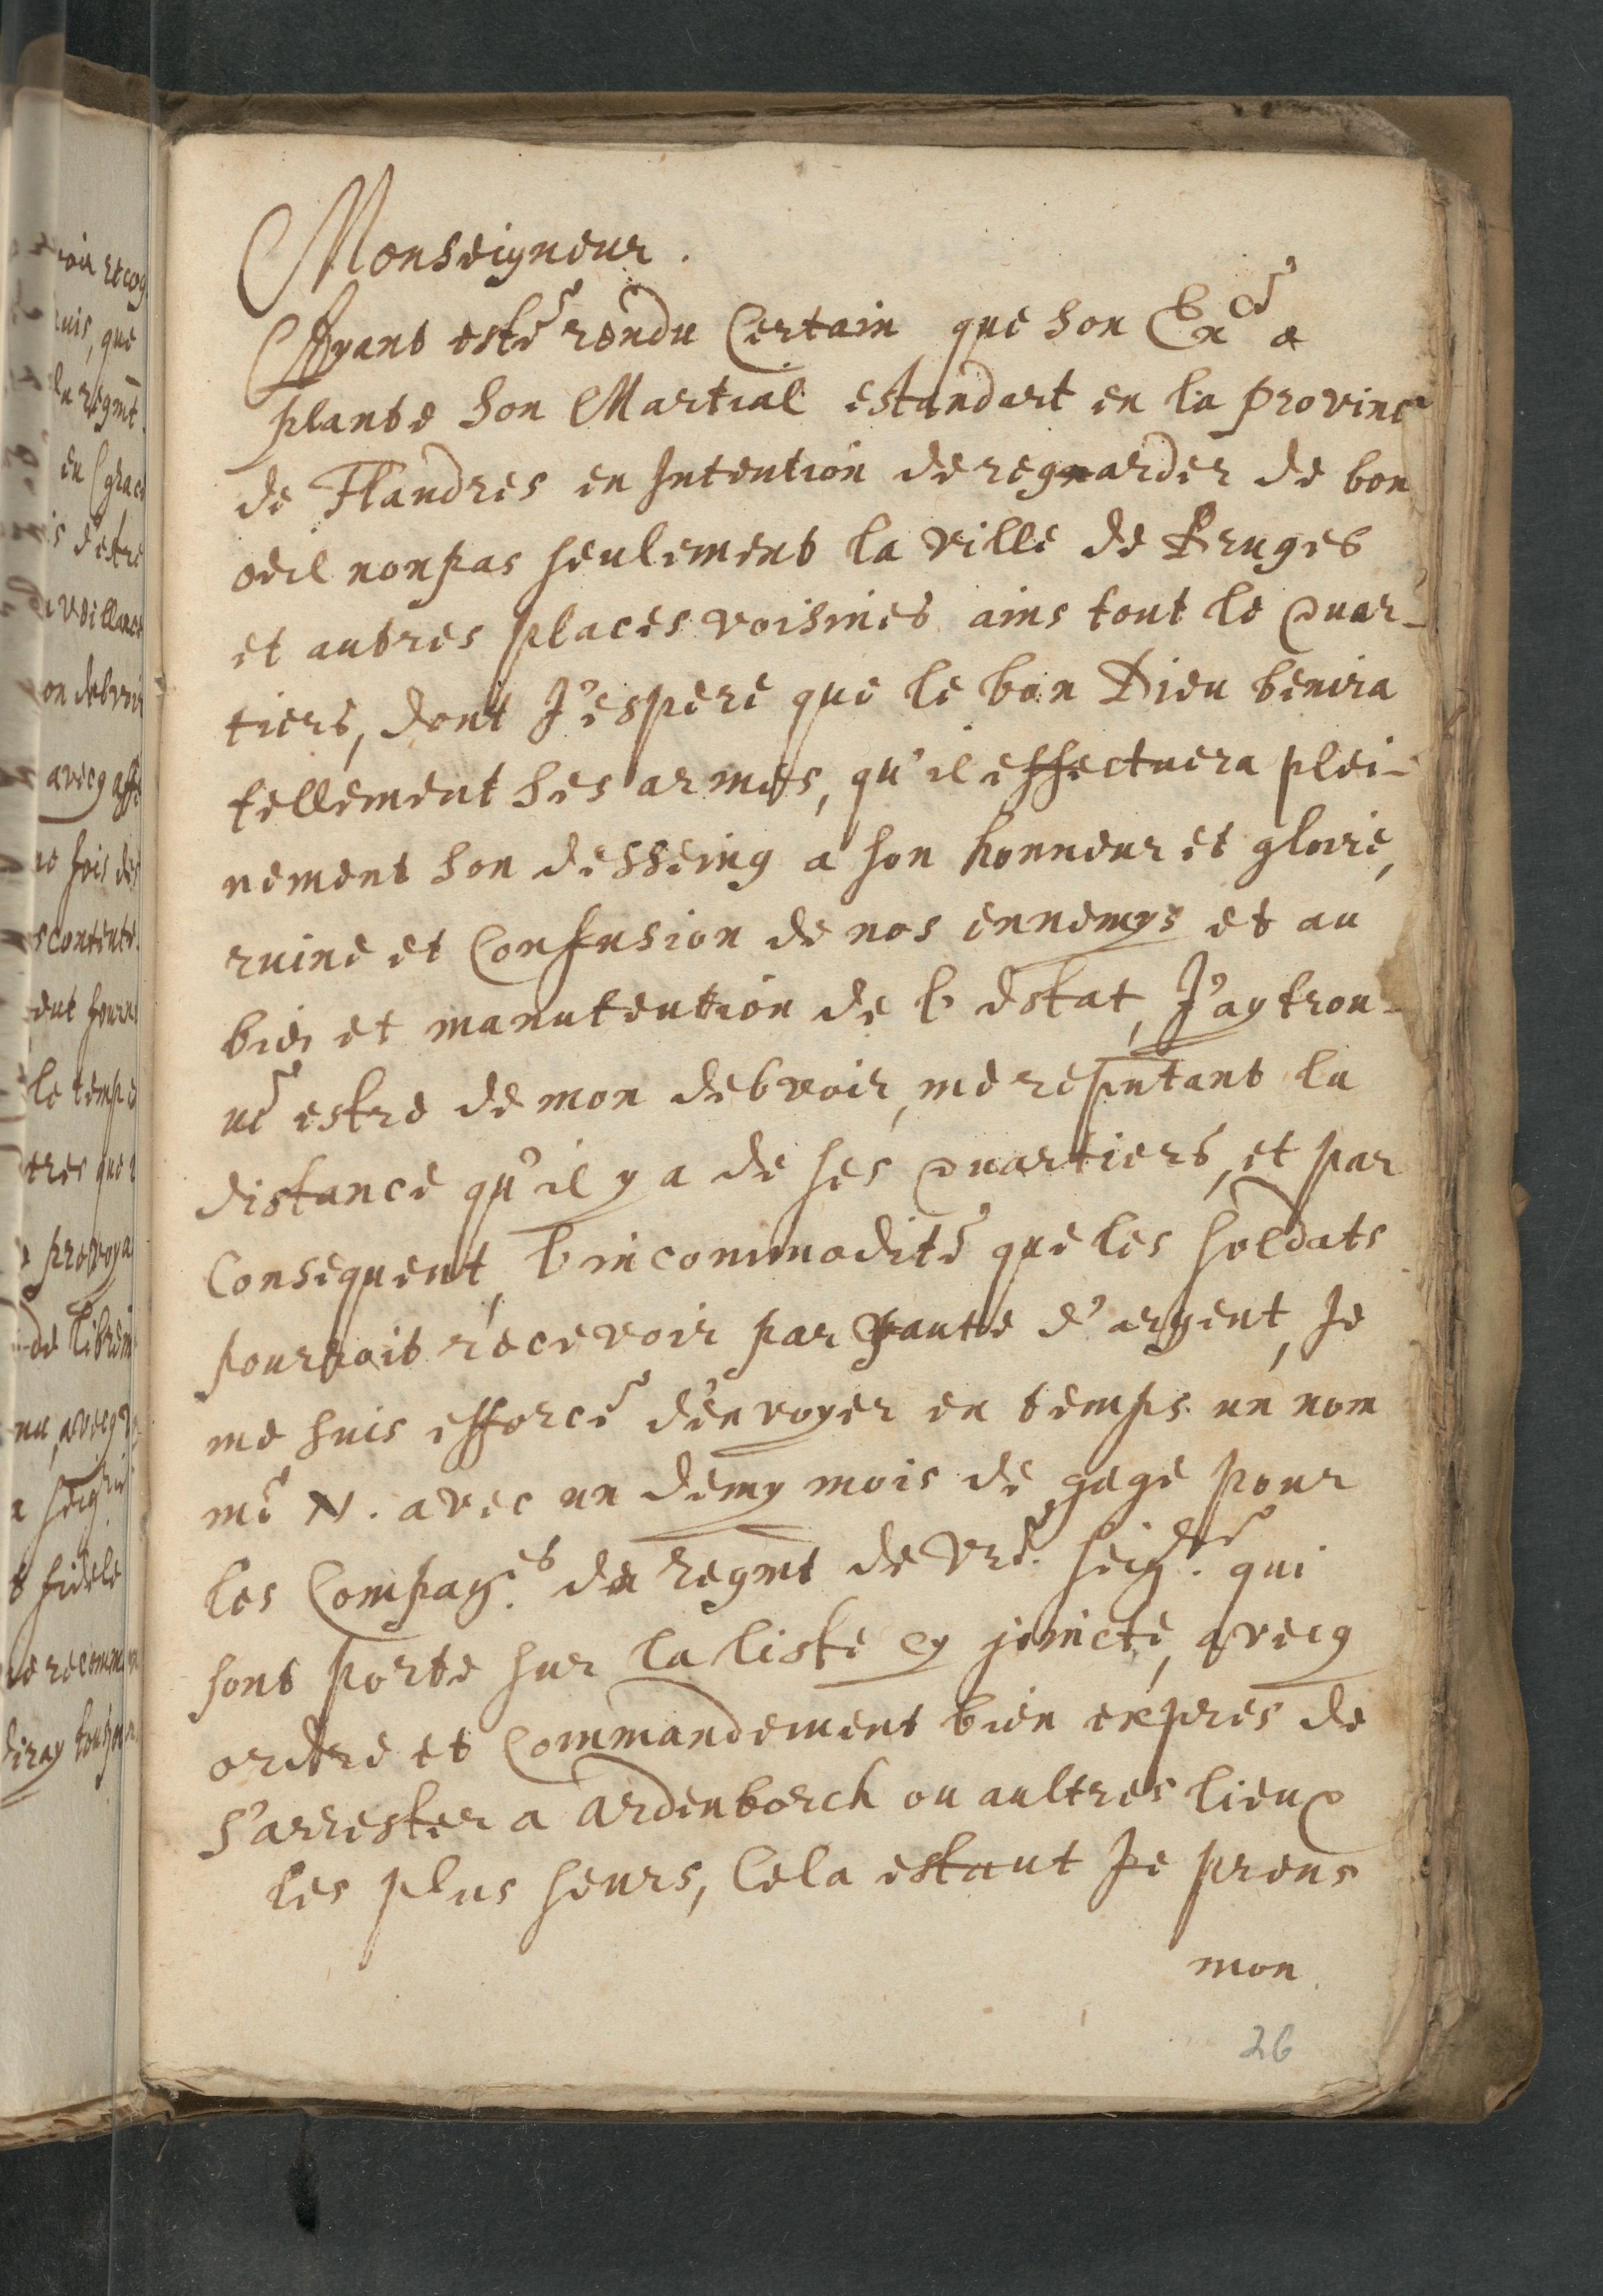 Monseigneur.
Ayant esté rendu Certain que son Ex.ce a
planté son Martial estandart en la province
de Flandres en Intention de regarder de bon
oeil nonpas seulement la ville de Bruges
et autres places voisines ains tout le quar-
tiers, dont J'espere que le bon Dieu benira
tellement ses armes, qu'il effectuera plei-
nement son desseing a son honneur et gloire,
ruine et Confusion de nos ennemys et au
bien et manutention de l'estat, J'ay trou-
vé estre de mon debvoir, me reputant la
distance qu'il y a de ses quartiers, et par
Consequent, l'incommodité que les soldats
pourroit recevoir par faute d'argent, Je
me suis efforcé d'envoyer en temps un nom
mé N. avec un demy mois de gage pour
les Compag.es du Regmt de vre. seig.rie qui
sont porte sur la liste cy joincte, avecq
ordre et Commandement bien expres de
s'arrester a ardenborch ou aultres lieux
les plus seurs, Cela estant Je prens
mon
26